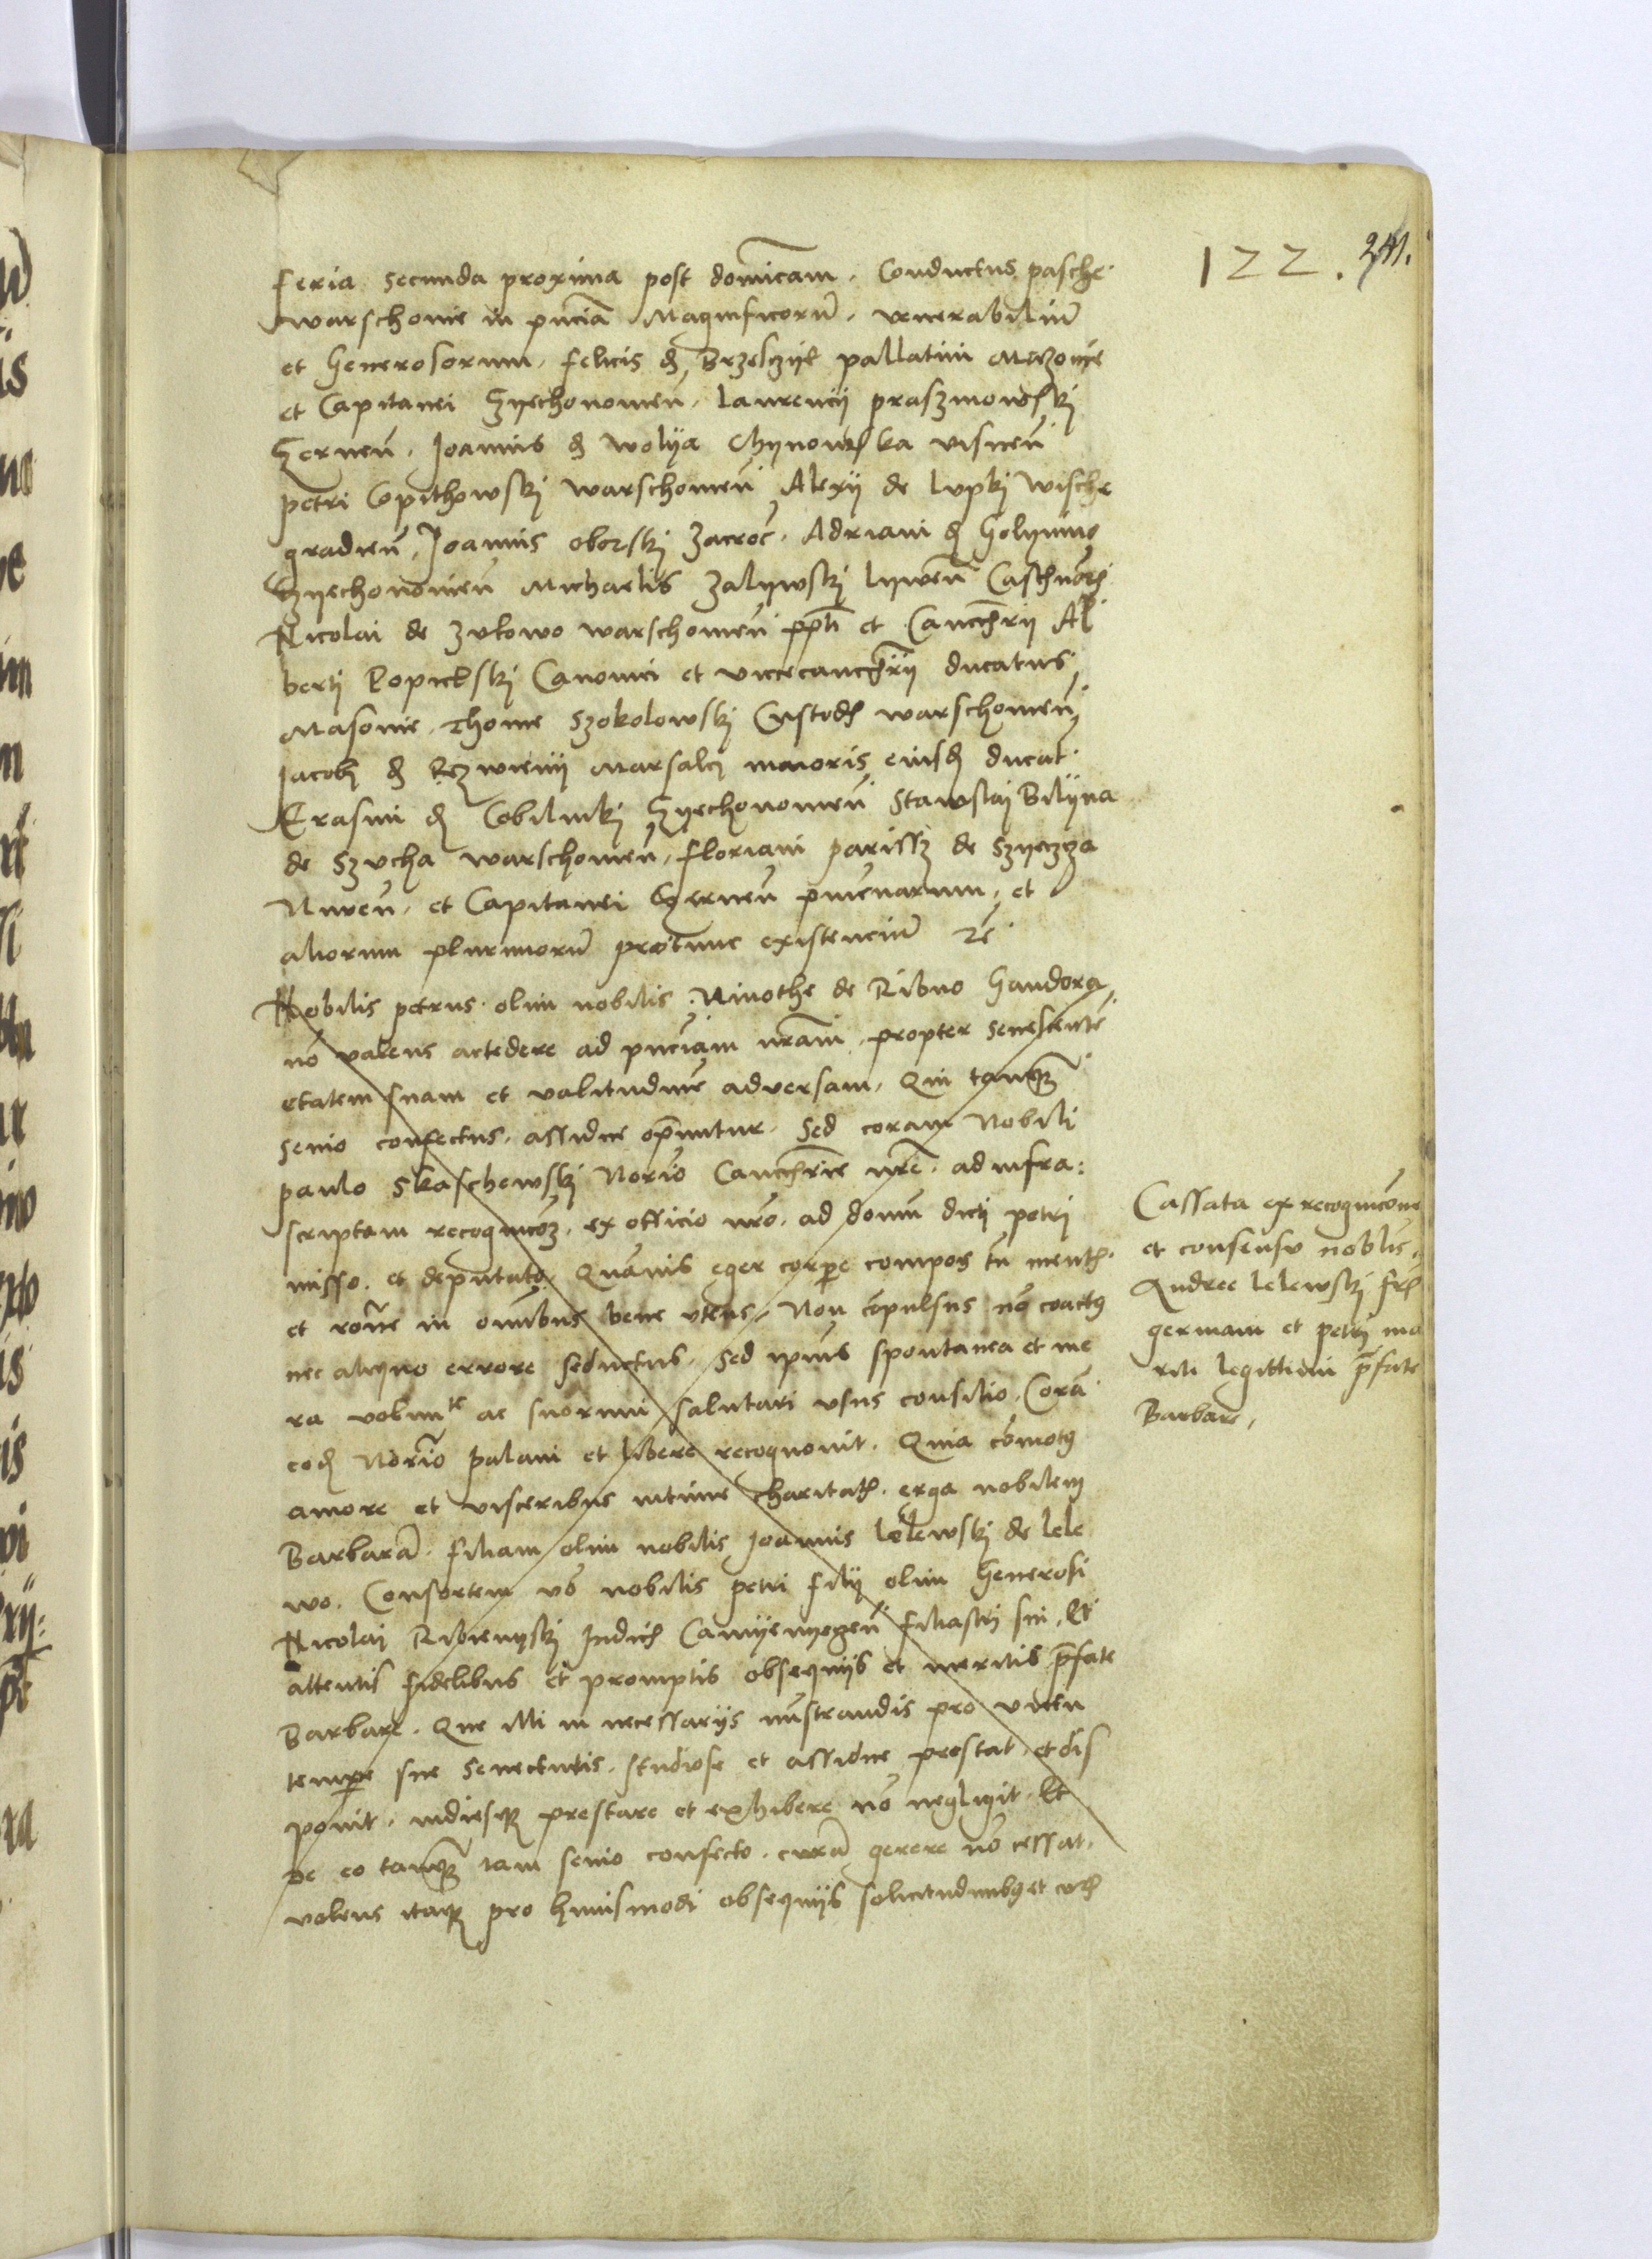 122. 241.
feria secunda proxima post domīcam. Conductus pasche
warschovie in pn̄cia Magnificorū. venerabiliū
et Generosorum. felicis d. Brzesczye pallatini Mazovie
et Capitanei Czyechonovien̄. laurencij praszmowskj
Czernen̄. Joannis d. wolya Chynowska visnen̄
petri Copithowskj warschovien̄ Alexij de lupkj wische
gradien̄. Joannis oborskj zacroc̄. Adriani d. Golymino
Czyechonovien̄ Michaelis zalywskj lywen̄ Castel̄norꝫ
Nicolai de zukowo warschovien̄ pp̄ti et Canc̄rij Al
bertj Popielskj Canonici et vicecanc̄rij ducatus
Masovie. Thome Szokolowskj Custodis warschovien̄
Jacobi d. Rzwienij Marsalci maioris eiusd. ducat
Erasmi d. Cobilnikj Czyechonovien̄ Stanislaj Bilyna
de Szucha warschovien̄. floriani parissz de Szyeczga
Nuren̄. et Capitanei Czernen̄ pincernarum. et
aliorum plurimorū protunc existenciū zc̄
Nobilis petrus olim nobilis Ninothe de Ribno Gandora
nō valens accedere ad pn̄ciam nr̄am. propter senescentē
etatem suam et valitudinē adversam. Qui tanqꝫ
senio confectus. assidue opp̄nitur. Sed coram Nobili
paulo Skaschewskj Norio Canc̄rie nr̄e. ad infra:
scriptam recognicōꝫ. ex officio nr̄o. ad domū dicti petri
misso. et deputato. Quāvis eger corꝑe compos tn̄ mentis
et rōne in omībus bene vtens. Non cōpulsus nō coactꝰ
nec aliquo errore seductus. Sed ip̄ius spontanea et me
ra volunte ac suorum salutari vsus consilio. Corā
eod. Norio palam et libere recognovit. Quia cōmotꝰ
amore et visceribus intime charitatis. erga nobilem
Barbarā. filiam olim nobilis Joannis lelewskj de lele
wo. Consortem vō nobilis petri filij olim Generosi
Nicolaj Ribienyskj Judicis Camyenyeczen̄ filiastrj sui. Et
attentis fidelibus et promptis obsequijs et meritis p̄fate
Barbare. Que illi in necessarijs mīstrandis pro vnicn
tempore sue senectutis. studiose et assidue prestat. et dis
ponit. indiesqꝫ prestare et exhibere nō negligit. Et
de eo tanqꝫ iam senio confecto. curā gerere nō cessat.
volens itaqꝫ pro huiusmodi obsequijs solicitudinibꝰ et curis
Cassata ex recognicōne
et consensu nobl̄is
Andree lelewskj fr̄is
germani et petri ma
riti legittimi p̄fate
Barbare,